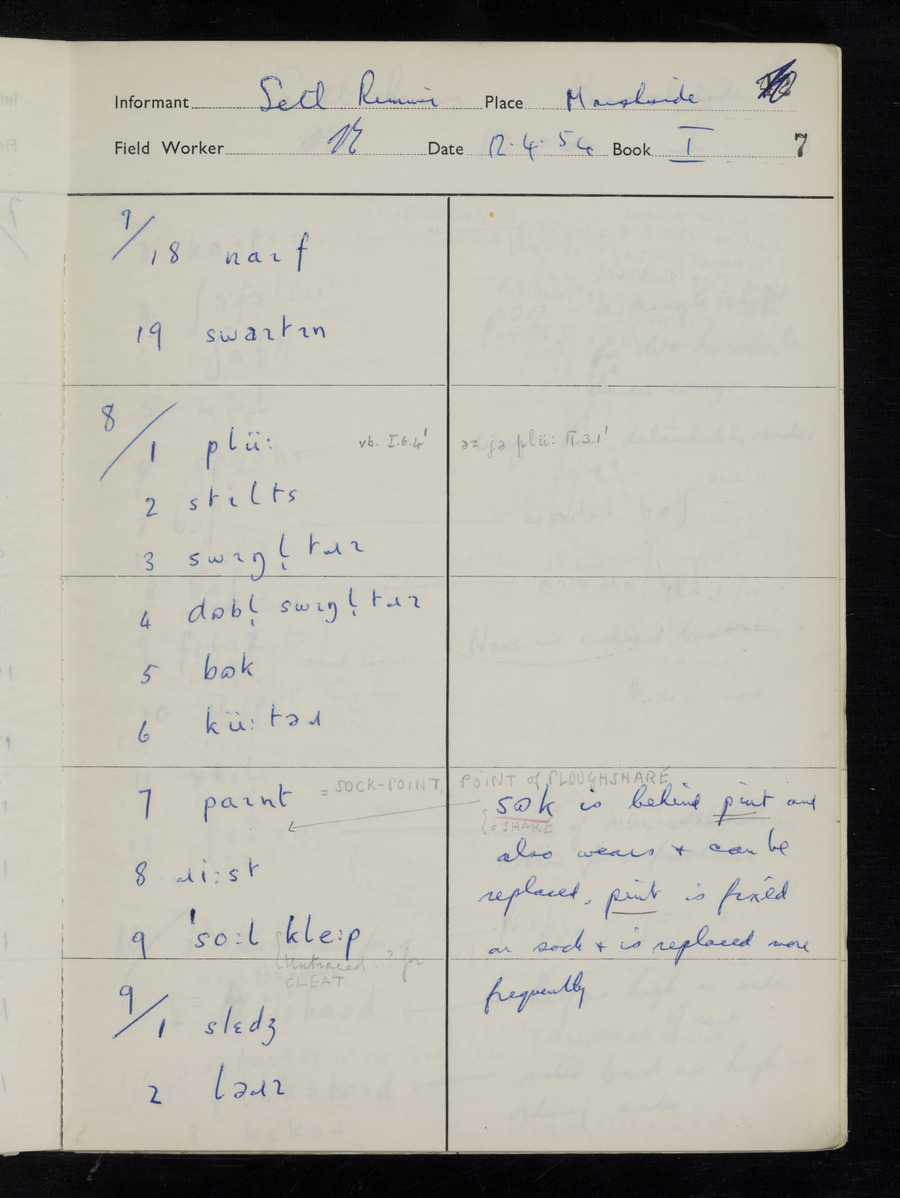 Informant Place Marshside
Field Worker Date 12.4.54 Book I 7
7/18 naɪf
19 swaɪtɪn
8/1 plü: vb. I.6.4' əz jə plü: II.3.1'
2 stɪlts
3 swɪŋl̩ tɹɪ
4 dɷbl̩ swɪŋl̩ tɹɪ
5 bɷk
6 kü:təɹ
7 paɪnt = SOCK-POINT, POINT of PLOUGHSHARE
sɷk is behind point and
{= SHARE
also wears + can be
replaced, point is fixed
on sock + is replaced more
frequently
8 ɹi:st
9 'so:l kle:p
{Untraced. ? for
CLEAT
9/1 slɛdʒ
2 ləɹɪ